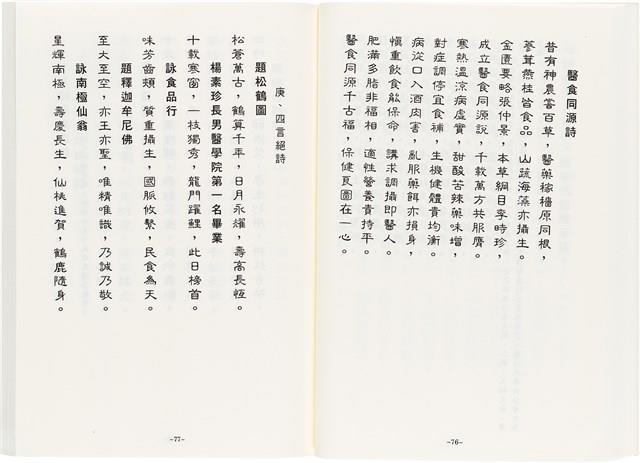 醫食同源詩
昔有神農嘗百草，醫藥稼穡原同根，
蔘茸燕桂皆食品，山蔬海藻亦攝生。
金匱要略張仲景，本草綱目李時珍，
成立醫食同源說，千載萬方共服膺。
寒熱溫涼病虛實，甜酸苦辣藥味增，
對症調停宜食補，生機健體貴均衡。
病從口入酒肉害，亂服藥餌亦損身，
慎重飲食能保命，講求調攝即醫人。
肥滿多脂非福相，適性營養貴持平。
醫食同源千古福，保健良圖在一心。
~76~
庚、四言絕詩
題松鶴圖
松蒼萬古，鶴算千年，日月永燿，壽高長恆。
楊素珍長男醫學院第一名畢業
十載寒窗，一枝獨秀，龍門躍鯉，此日榜首。
詠食品行
味芳齒頰，質重攝生，國脈攸繫，民食為天。
題釋迦牟尼佛
至大至空，亦王亦聖，唯精唯識，乃誠乃敬。
詠南極仙翁
星輝南極，壽慶長生，仙桃進賀，鶴鹿隨身。
~77~